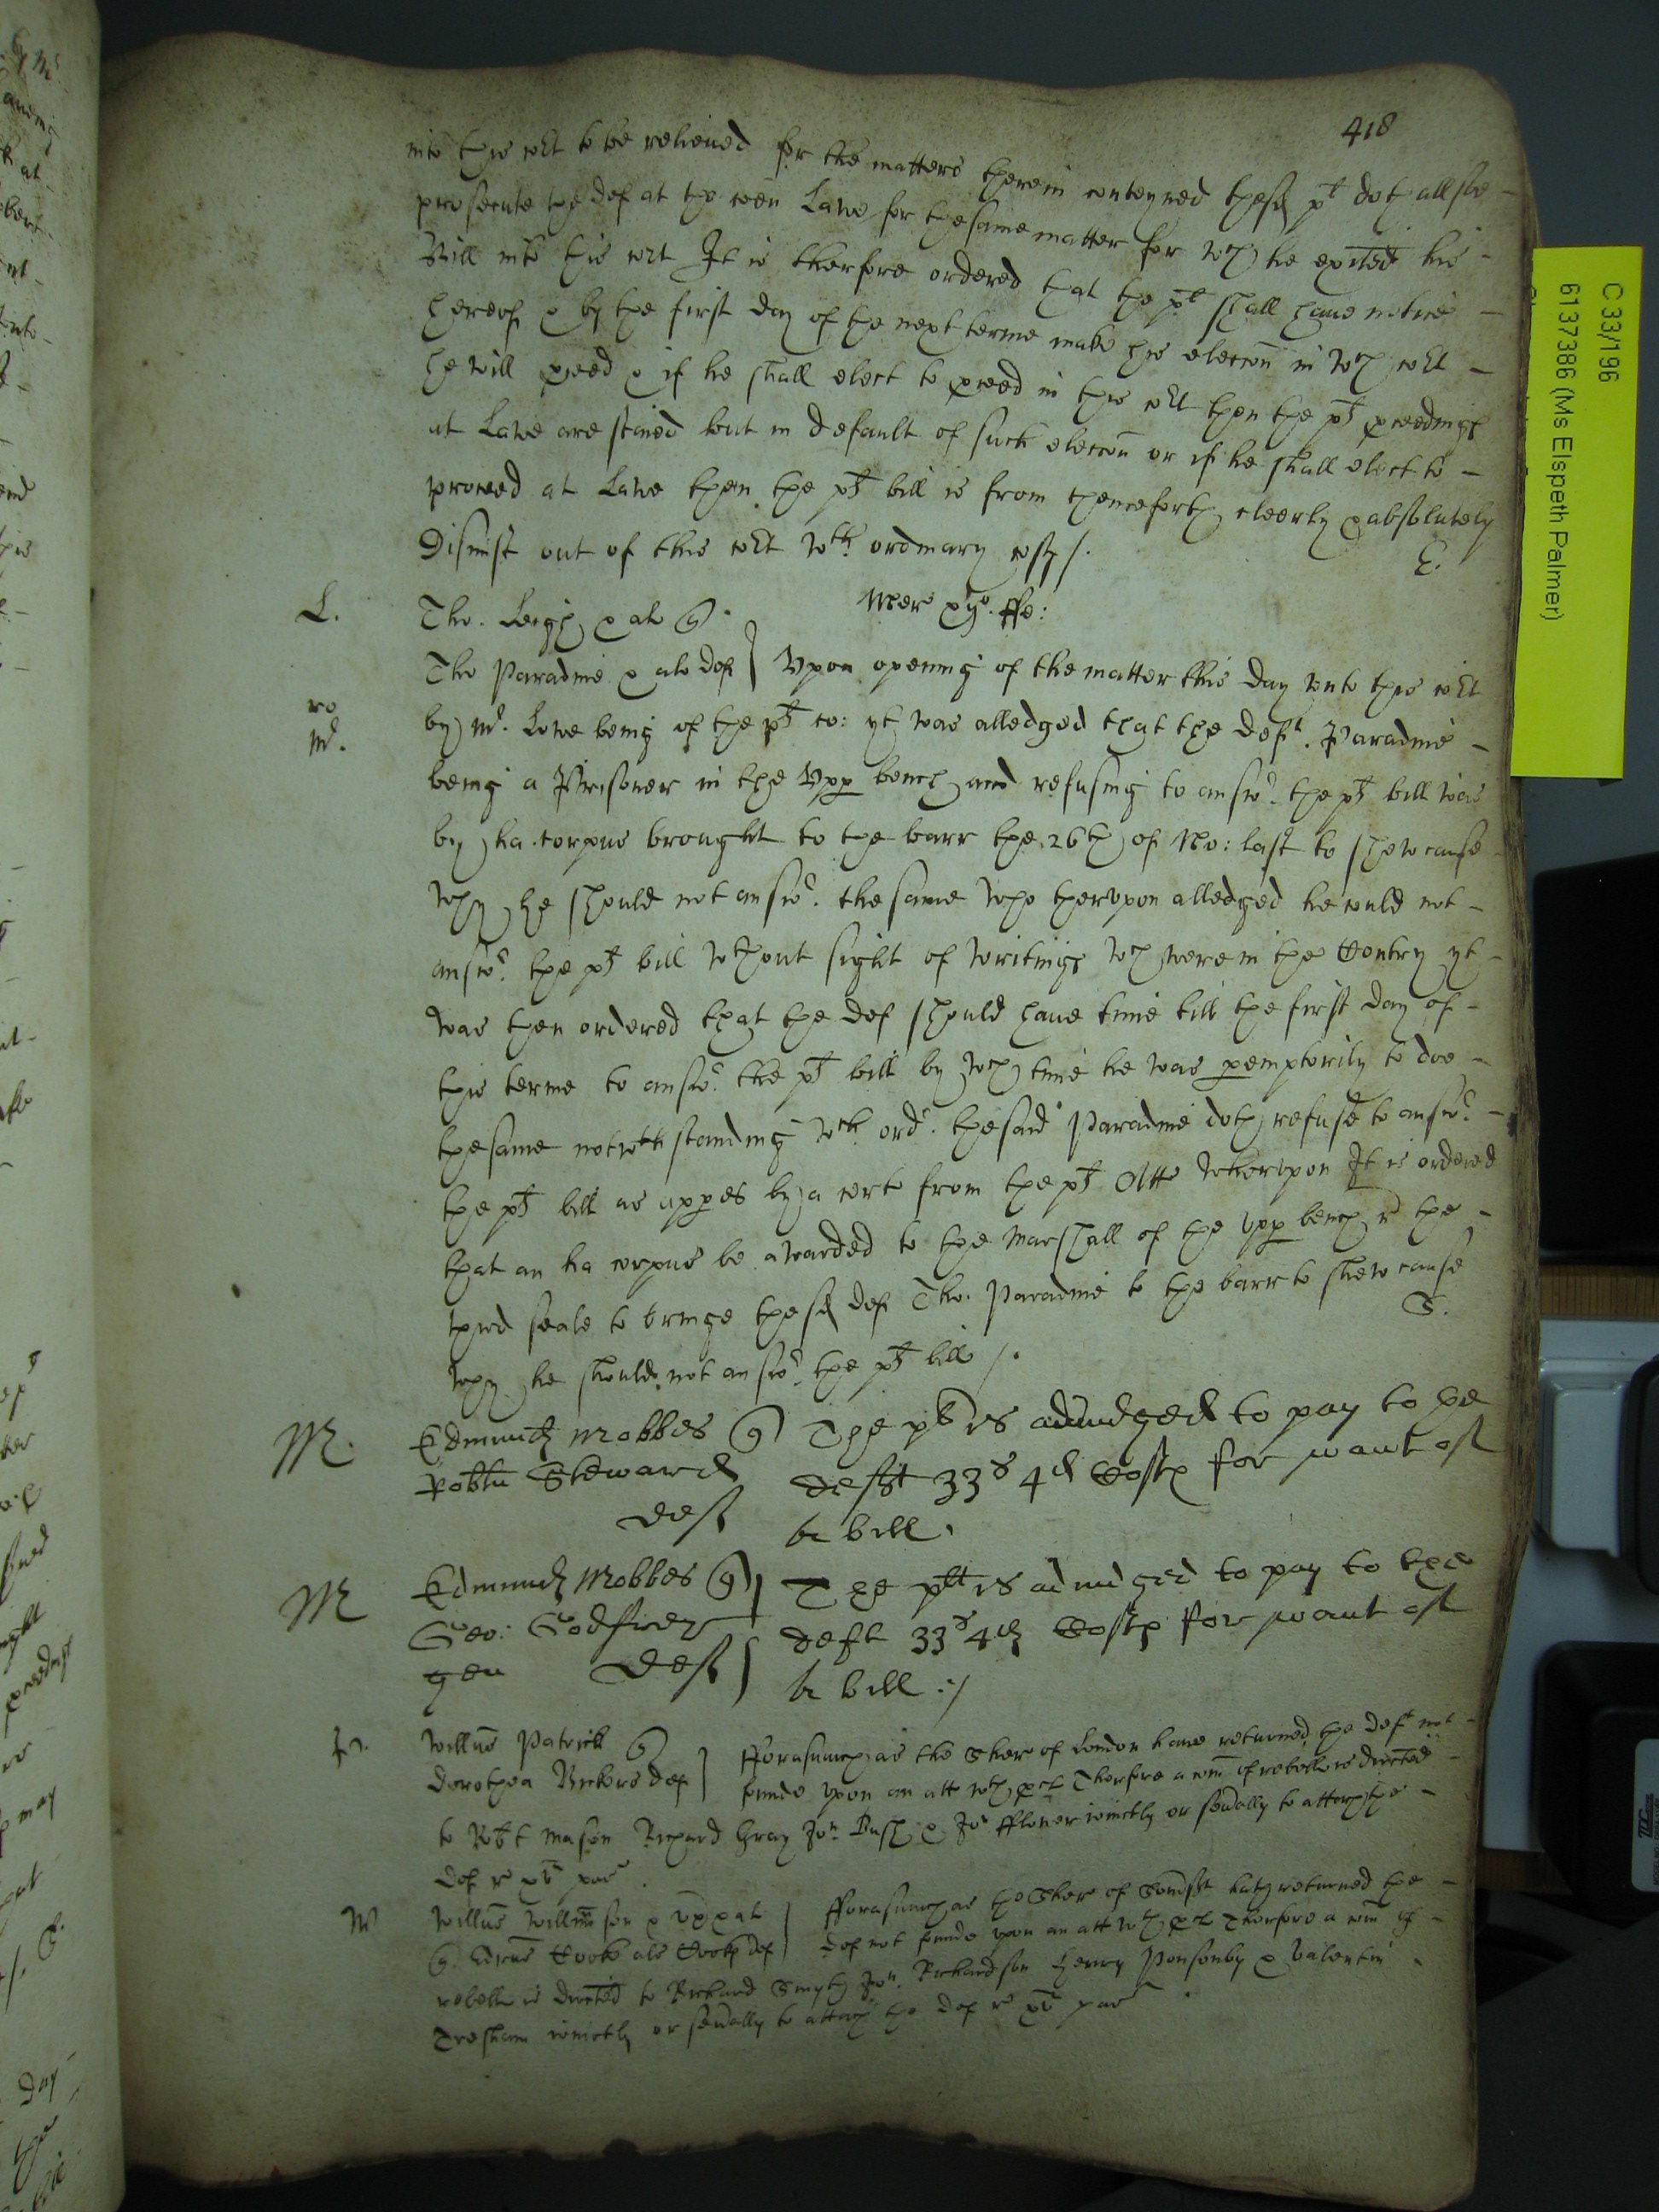 418
into this Co^rt to be relieved for the matters therein conteyned thesd p^lt doth allsoe
prosecute the def at the coẽn Lawe for thesame matter for w^ch he exhited his
Bill into this Co^rt It is therfore ordered that the p^lt shall have notice
hereof & by the first day of the next terme make his eleccõn in w^ch Co^rt
he will pceed & if he shall elect to pceed in this Co^rt then the p^lts pceedings
at Lawe are staied but in default of such eleccõn or if he shall elect to
proceed at Lawe then the p^lts bill is from thenceforth cleerly & absolutely
Dismist out of this Co^rt w^th ordinary costs /.
E.
L.
Mer^c xij^o ffe:
Tho. Leigh & al q^r
Tho Paradine & als def
Vpon opening of the matter this day unto this Co^rt
ro
M^d.
by m^r. Lowe being of the p^lts co: yt was alledged that the def^t. Paradine
being a Prisoner in the Vpp bench and refusing to answ^r. the p^lts bill was
by ha. corpus brought to the barr the 26th of No: last to shew cause
why he should not answ^r. the same who thervpon alledged he could not
answ^r. the p^lts bill w^thout sight of writings w^ch were in the Contry yt
was then ordered that the def should have time till the first day of
this terme to answ^r. the p^lts bill by w^ch time he was pemptorily to doe
thesame notw^thstanding w^ch ord^r. thesaid Paradine doth refuse to answ^r.
the p^lts bill as appes by a cert from the p^lts Atto whervpon It is ordered
that an ha corpus be awarded to the Marshall of the Vpp bench r^d the
third seale to bringe thesd def Tho. Paradine to the barr to shew cause
S.
why he should not answ^r. the p^lts bill /.
M.
Edmund Mobbes q^r
Robtu Steward
def
The p^lt is adiudged to pay to the
deft 33^s 4^d Costs for want of
a bill.
M
Edmund Mobbes q^r
Geo: Godfrey
gen def
The pltt is adiudged to pay to the
deft 33^s 4^d Costs for want of
a bill :/
Willus Patrick q^r
Dorothea Vickers def
fforasmuch as the Sher of London have returned the def^t not
founde vpon an att w^th &c^t Therfore a com of rebell is directed
to Rob^t Mason Richard Gray Jo^n. Bush & Jo^n fflower ioinctly or sevally to attach the
def
W
Willus Willmson & vx &al
q^r Cooke als Cooke def
fforasmuch as the Sher of Somst hath returned the
def not founde vpon an att w^th &c^t Therfore a com of
rebell is directed to Richard Smyth Jo^n. Richardson Henry Ponsonby & Valentin
Tresham ioinctly or sevally to attach the def
C 33/196
6137386 (Ms Elspeth Palmer)